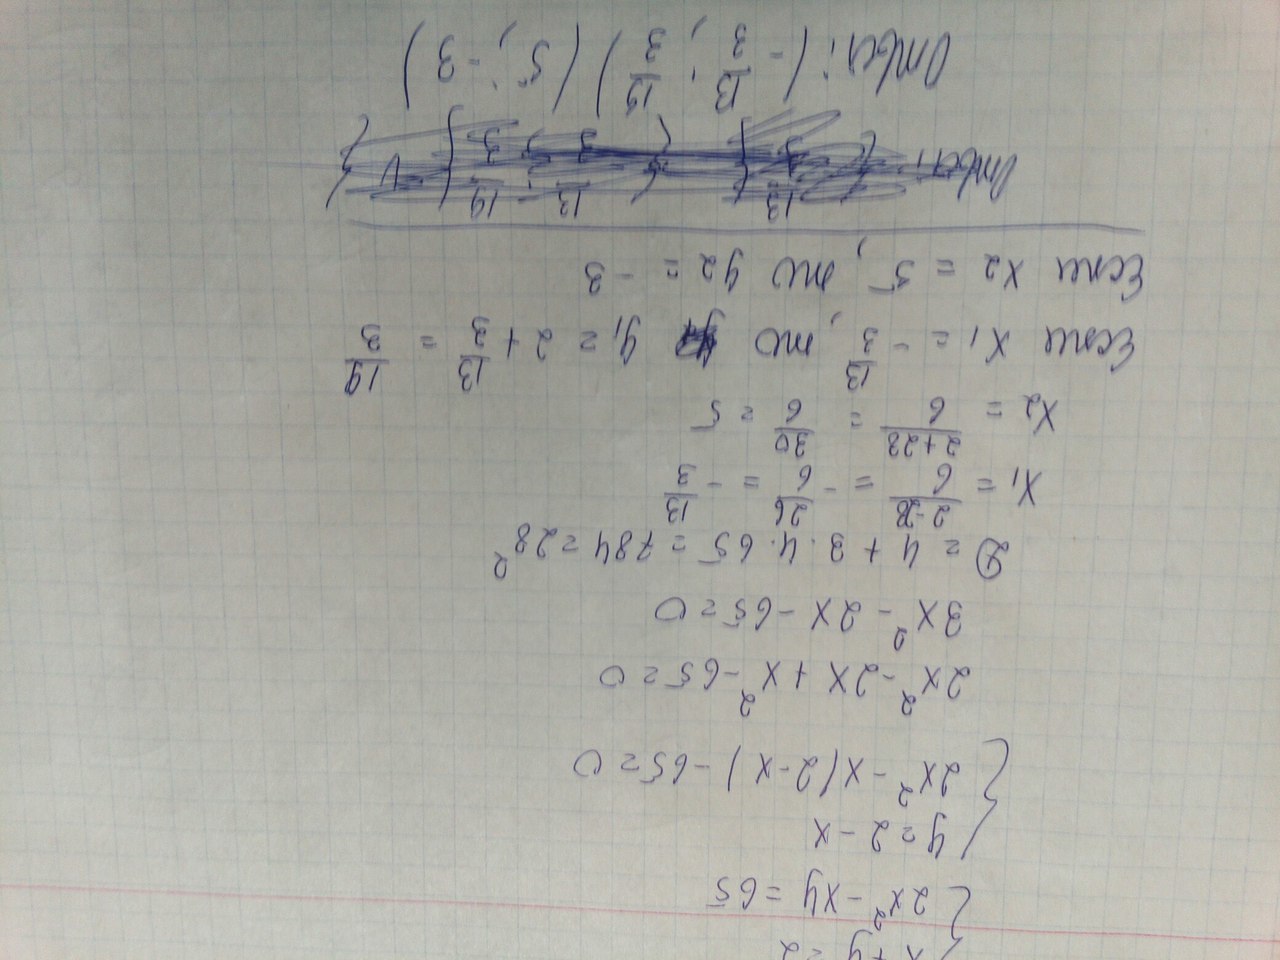 x + y = 2
2x² - xy = 65
y = 2 - x
2x² - x(2-x) - 65 = 0
2x² - 2x + x² - 65 = 0
3x² - 2x - 65 = 0
D = 4 + 3·4·65 = 784 = 28²
x₁ = (2-28)/6 = -26/6 = -13/3
x₂ = (2+28)/6 = 30/6 = 5
Если x₁ = -13/3, то y₁ = 2 + 13/3 = 19/3
Если x₂ = 5, то y₂ = -3
Ответ:
Ответ: (-13/3; 19/3) (5; -3)